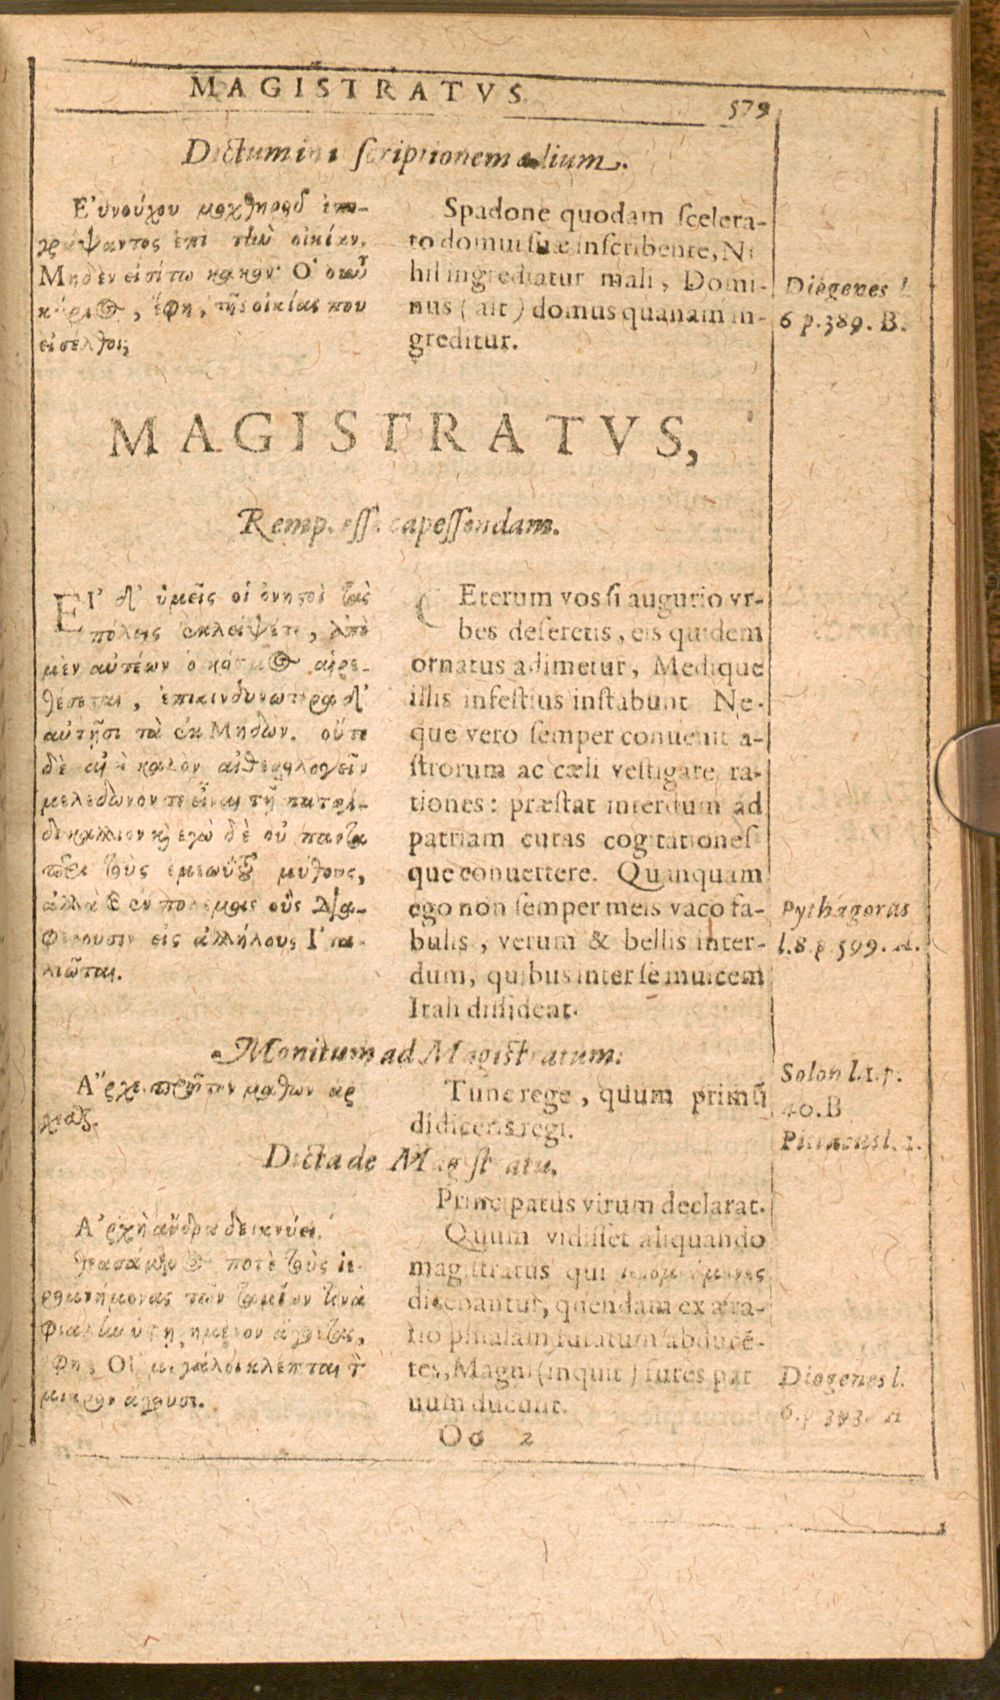 MAGISTRATVS
579
Dictum in inscriptionem ædium.
Εὐνούχου μοχθηροῦ ἐπι-
γράψαντος ἐπὶ τὴν οἰκίαν,
Μηδὲν εἰσίτω κακόν· Ὁ οὖν
κύριος, ἔφη, τῆς οἰκίας που
εἰσέλθοι;
Spadone quodam scelera-
to domui suæ inscribente, Ni
hil ingrediatur mali, Domi-
nus (ait) domus quanam in-
greditur.
Diogenes l.
6 p.389. B.
MAGISTRATVS,
Remp. esse capessendam.
ΕΙ' δ' ὑμεῖς οἱ ὀνητοὶ τὰς
πόλεις ἐκλείψετε, ἀπὸ
μὲν αὐτέων ὁ κόσμος αἱρε-
θέσεται, ἐπικινδυνώτερα δ'
αὐτῇσι τὰ ἐκ Μήδων. οὔτε
δὲ αἰεὶ καλὸν αἰθερολογεῖν
μελεδωνόν τε εἶναι τῇ πατρί-
δι κάλλιον κὶ ἐγὼ δὲ οὐ πάντα
περὶ τοὺς ἐμεωυτοῦ μύθους,
ἀλλὰ καὶ ἐν πολέμοις οὓς δια-
φέρουσιν εἰς ἀλλήλους Ἰτα-
λιῶται.
CEterum vos si augurio vr-
bes deseretis, eis quidem
ornatus adimetur, Medique
illis infestius instabunt. Ne-
que vero semper conuenit a-
strorum ac cæli vestigare ra-
tiones: præstat interdum ad
patriam curas cogitationes
que conuertere. Quanquam
ego non semper meis vaco fa-
bulis, verum & bellis inter-
dum, quibus inter se inuicem
Itali dissideat.
Pythagoras
l.8.p.599. A.
Monitum ad Magistratum:
Ἄρχε πρῶτον μαθὼν ἄρ
χεσθ.
Tunc rege, quum primũ
didiceris regi.
Solon l.1.p.
40.B
Pittacus l. 1.
Dicta de Magistratu.
Ἀρχὴ ἄνδρα δείκνυσι.
Θεασάμενος ποτὲ τοὺς ἱε-
ρομνήμονας τῶν ταμιῶν τινα
φιάλην ὑφῃρημένον ἄγοντας,
ἔφη, Οἱ μεγάλοι κλέπται τ
μικρὸν ἄγουσι.
Principatus virum declarat.
Quum vidisset aliquando
magistratus qui ἱερομνήμονες
dicebantur, quendam ex æra-
rio phialam furatum abducē-
tes, Magni (inquit) fures par
uum ducunt.
Diogenes l.
6.p 393. A
Oo 2